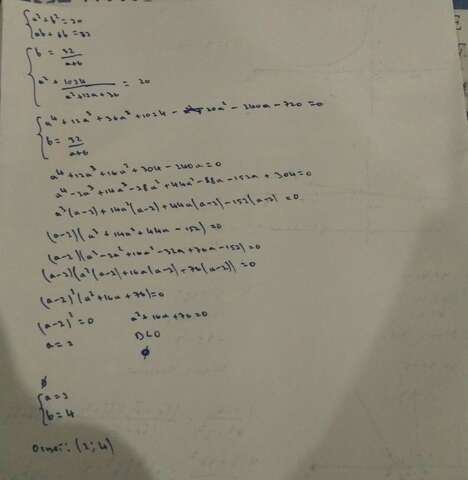 {a² + b² = 20
{ab + 6b = 32
{b = 32/(a+6)
{a² + 1024/(a²+12a+36) = 20
{a⁴ + 12a³ + 36a² + 1024 - 20a² - 240a - 720 = 0
{b = 32/(a+6)
a⁴ + 12a³ + 16a² + 304 - 240a = 0
a⁴ - 2a³ + 14a³ - 28a² + 44a² - 88a - 152a + 304 = 0
a³(a-2) + 14a²(a-2) + 44a(a-2) - 152(a-2) = 0
(a-2)(a³ + 14a² + 44a - 152) = 0
(a-2)(a³ - 2a² + 16a² - 32a + 76a - 152) = 0
(a-2)(a²(a-2) + 16a(a-2) + 76(a-2)) = 0
(a-2)²(a² + 16a + 76) = 0
(a-2)² = 0 a² + 16a + 76 = 0
a = 2 D<0
∅
{a = 2
{b = 4
Ответ: (2; 4)